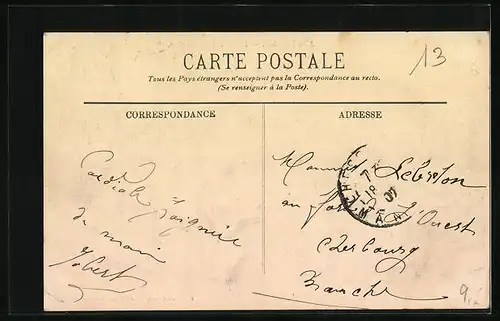 13
CARTE POSTALE
Tous les Pays étrangers n'acceptent pas la Correspondance au recto.
(Se renseigner à la Poste).
CORRESPONDANCE
ADRESSE
Cordiale poignée
de main
Monsieur Lebreton
au l'Ouest
Cherbourg
Manche